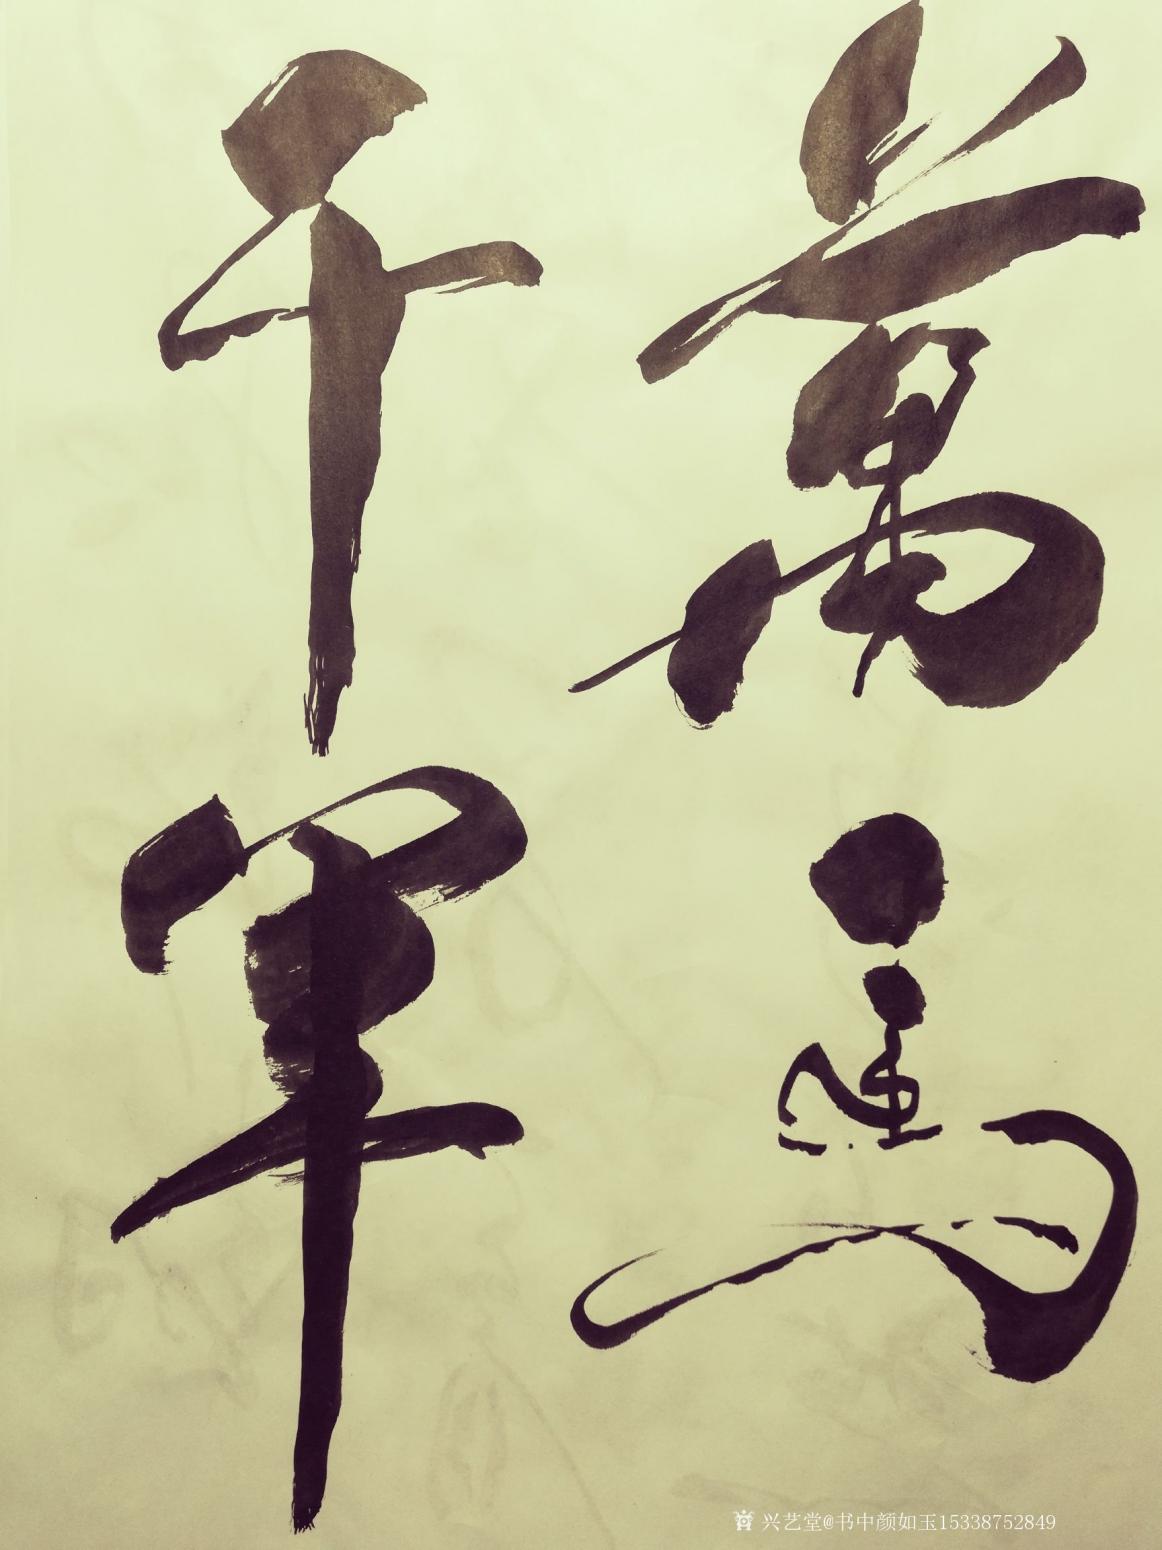 萬馬
千軍
兴艺堂@书中颜如玉15338752849